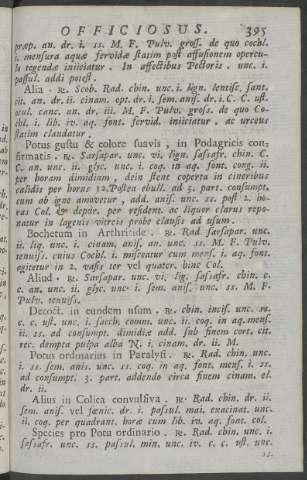 OFFICIOSUS. 395
præp. an. dr. i. ss. M. F. Pulv. gross. de quo cochl.
i. mensura aquæ fervidæ statim post affusionem opercu-
lo tegendæ iniiciatur. In affectibus Pectoris. unc. i.
passul. addi potest.
Alia. ℞. Scob. Rad. chin. unc. i. lign. lentisc. sant.
cit. an. dr. ii. cinam. opt. dr. i. sem. anis. dr. i. C. C. ust.
vul. canc. an. dr. iii. M. F. Pulv. gross. de quo Co-
chl. i. lib. iv. aq. font. fervid. iniiciatur, ac urceus
statim claudatur.
Potus gustu & colore suavis, in Podagricis con-
firmatis. ℞. Sarsapar. unc. vi. lign. sassafr. chin. C.
C. an. unc. ii. glyc. unc. i. coq. in aq. font. cong. ii.
per horam dimidiam, dein stent coperta in cineribus
calidis per horas 12. Postea ebull. ad 3. part. consumpt.
cum ab igne amovetur, add. anis. unc. ss. post 2. ho-
ras Col. & depur. per residen. ac liquor clarus repo-
natur in lagenis vitreis probe clausis ad usum.
Bochetum in Arthritide. ℞. Rad sarsapar. unc.
ii. liq. unc. i. cinam. anis. an. unc. ss. M. F. Pulv.
tenuiss. cuius Cochl. i. misceatur cum mens. i. aq. font.
agitetur in 2. vasis ter vel quater, hinc Col.
Aliud. ℞. Sarsapar. unc. vi. lig. sassafr. chin. c.
c. an. unc. ii. glyc. unc. i. sem. anis. unc. ss. M. F.
Pulv. tenuiss.
Decoct. in eundem usum. ℞. chin. incis. unc.
c. c. ust. unc. i. sacch. comm. unc. ii. coq. in aq. mens.
ii. ss. ad consumpt. dimidiæ add. sub finem cort. cit.
rec. dempta pulpa alba N. i. cinam. dr. ii. M.
Potus ordinarius in Paralysi. ℞. Rad. chin. unc.
i. ss. sem. anis. unc. ss. coq. in aq. font. mens. i. ss.
ad consumpt. 3. part. addendo circa finem cinam. el.
dr. ii.
Alius in Colica convulsiva. ℞. Rad chin. dr. ii.
sem. anis. vel fœnic. dr. i. passul. mai. exacinat. unc.
ii. coq. per quadrant. horæ cum lib. iv. aq. font. col.
Species pro Potu ordinario. ℞. Rad. chin. unc. i.
sassafr. unc. ss. passul. min. unc. iv. c. c. ust. unc.